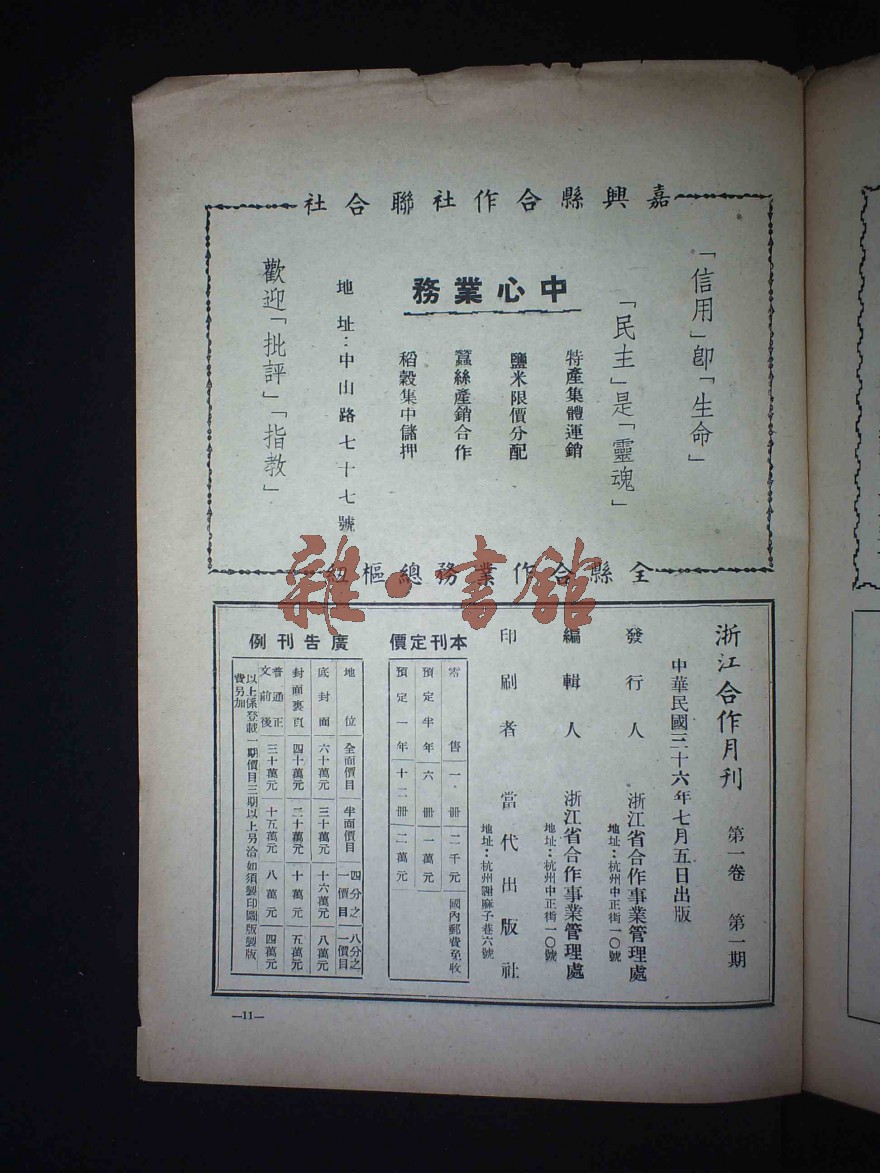 嘉興縣合作社聯合社
「信用」卽「生命」
「民主」是「靈魂」
中心業務
特產集體運銷
鹽米限價分配
蠶絲產銷合作
稻穀集中儲押
地址：中山路七十七號
歡迎「批評」「指教」
全縣合作業務總樞紐
雜·書館
浙江合作月刊 第一卷 第一期
中華民國三十六年七月五日出版
發行人 浙江省合作事業管理處
地址：杭州中正街一〇號
編輯人 浙江省合作事業管理處
地址：杭州中正街一〇號
印刷者 當代出版社
地址：杭州謝麻子巷六號
本刊定價
零售 一冊 二千元 國內郵費免收
預定半年 六冊 一萬元
預定一年 十二冊 二萬元
廣告刊例
地位 全面價目 半面價目 四分之一價目 八分之一價目
底封面 六十萬元 三十萬元 十六萬元 八萬元
封面裏頁 四十萬元 二十萬元 十萬元 五萬元
普通正文前後 三十萬元 十五萬元 八萬元 四萬元
以上係登載一期價目三期以上另洽如須製印圖版製版費另加
—11—